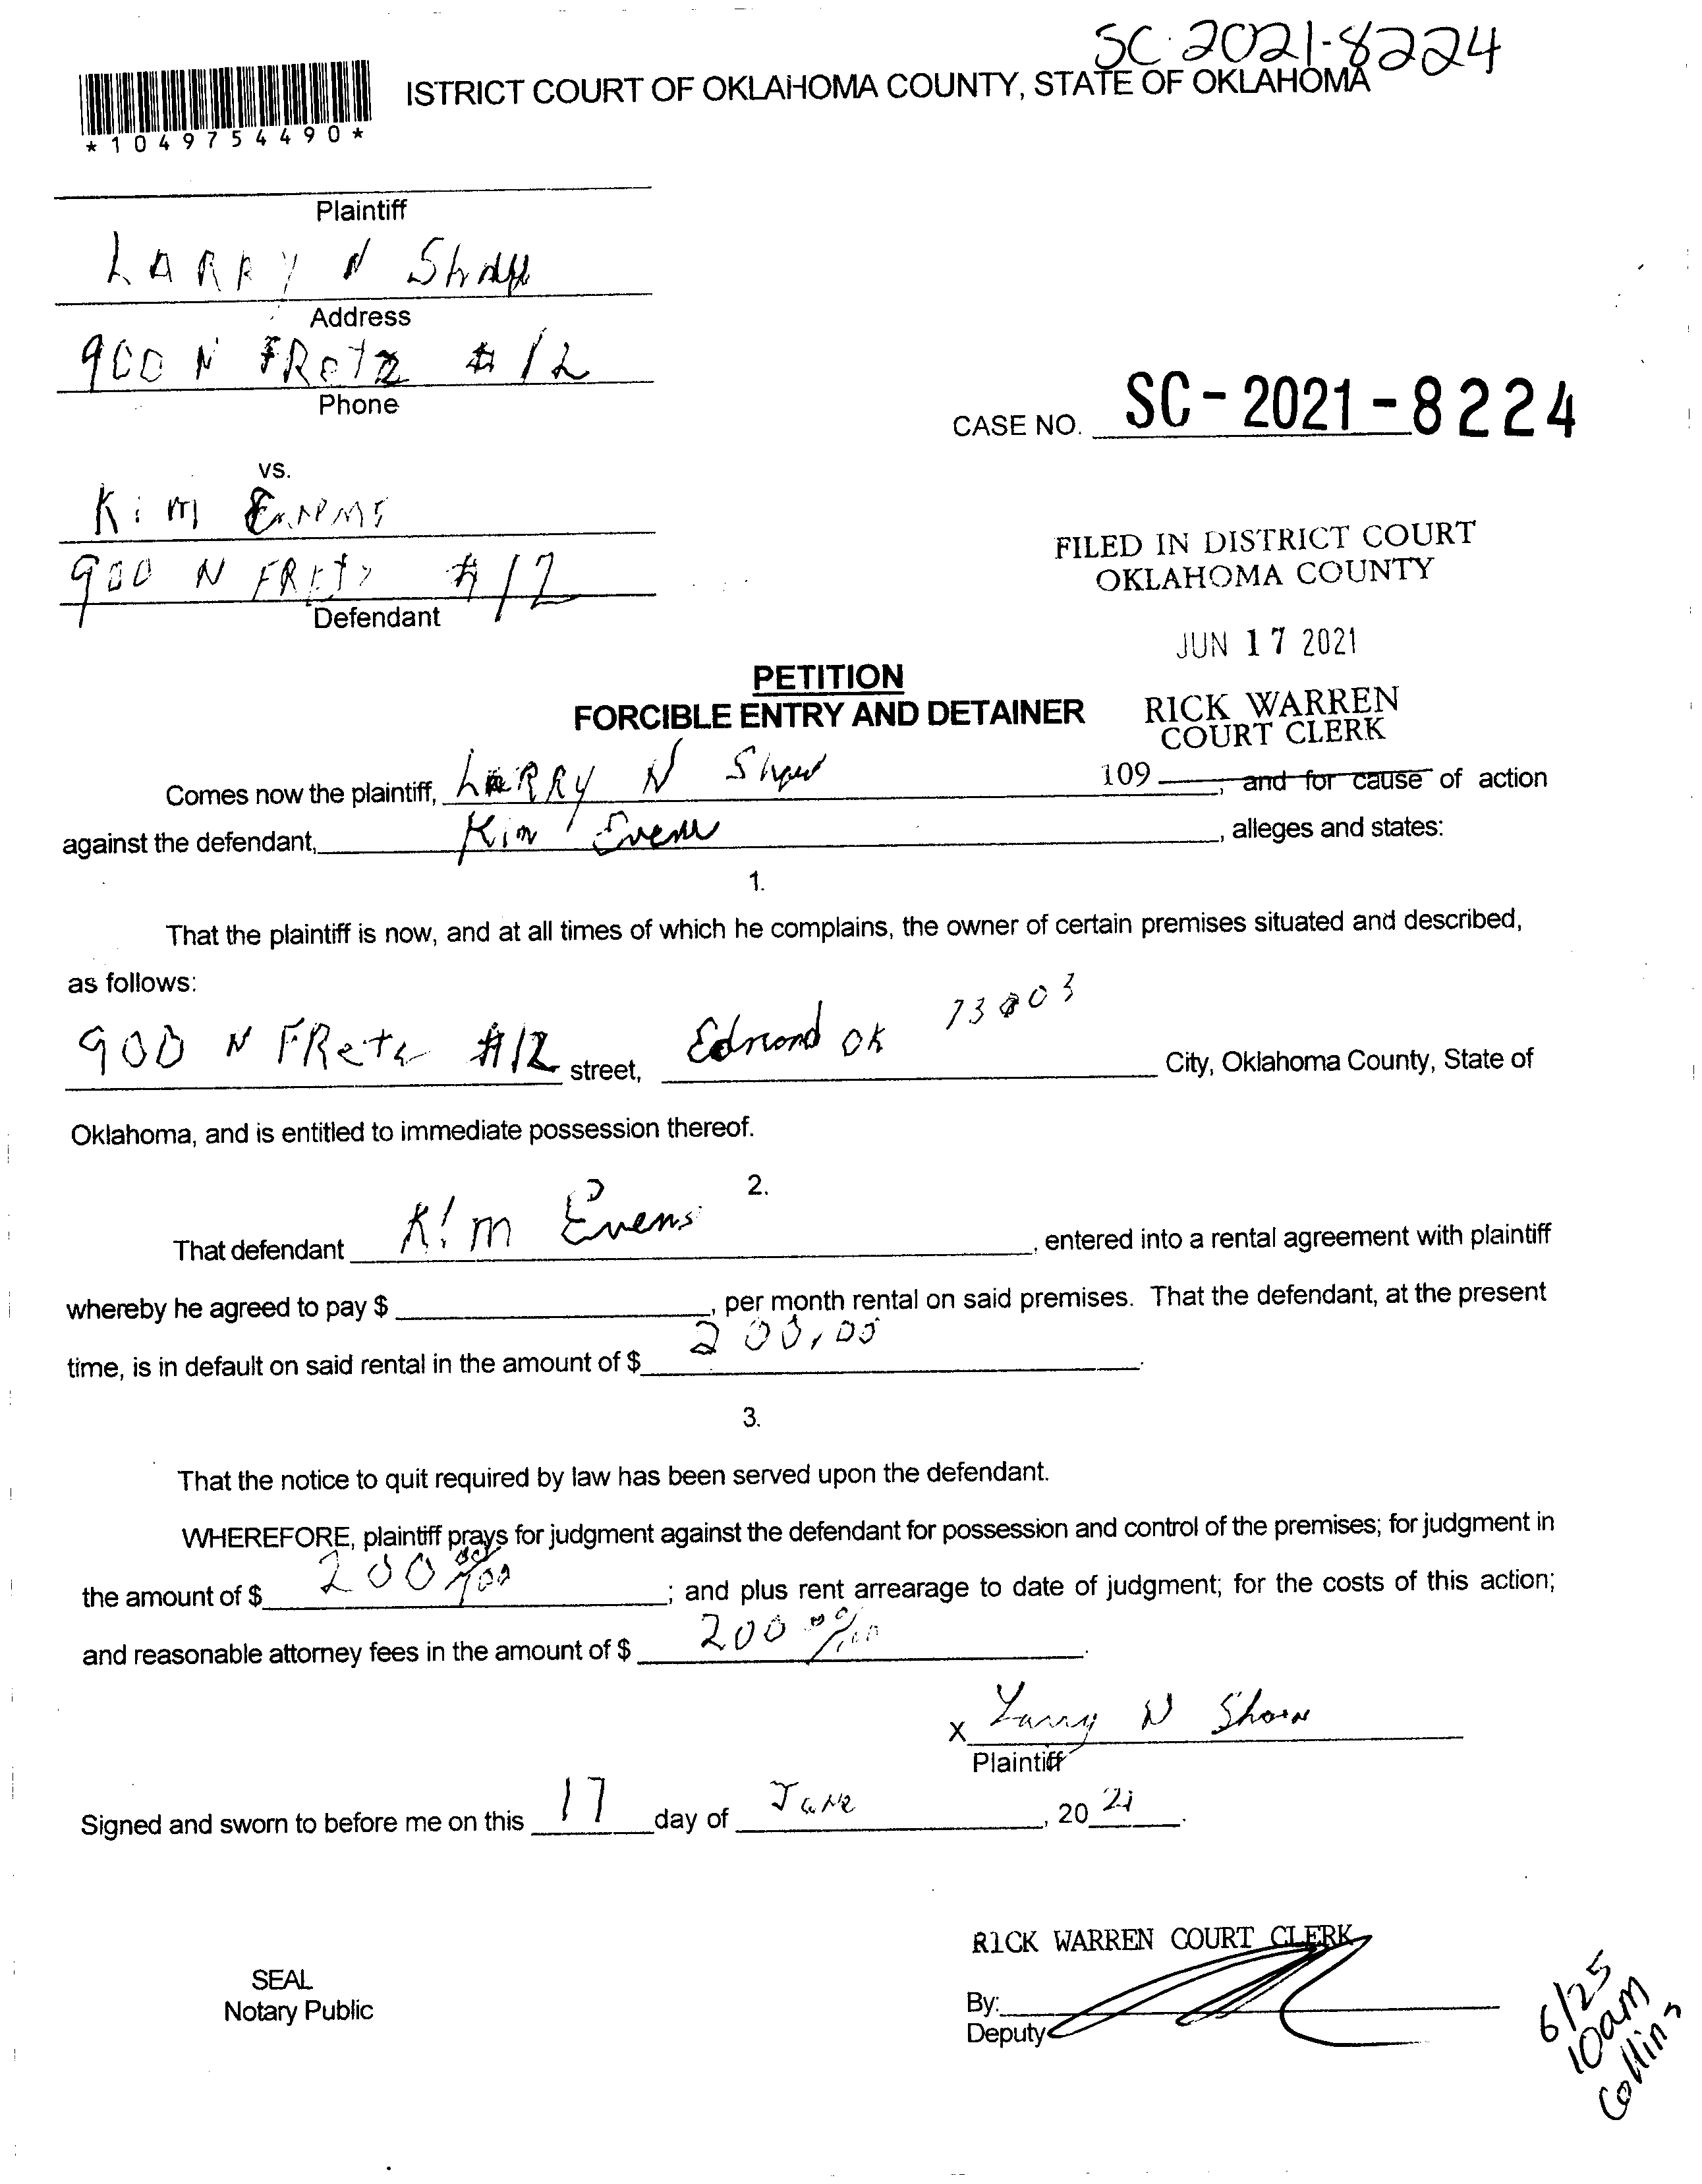 SC-2021-8224
ISTRICT COURT OF OKLAHOMA COUNTY, STATE OF OKLAHOMA
*1049754490*
Plaintiff
LARRY N Shaw
Address
900 N FRetz #12
Phone
CASE NO. SC-2021-8224
vs.
Kim
900 N FRetz #12
Defendant
FILED IN DISTRICT COURT
OKLAHOMA COUNTY
JUN 17 2021
RICK WARREN
COURT CLERK
PETITION
FORCIBLE ENTRY AND DETAINER
Comes now the plaintiff, LARRY N Shaw 109 , and for cause of action
against the defendant, Kim Evens , alleges and states:
1.
That the plaintiff is now, and at all times of which he complains, the owner of certain premises situated and described,
as follows:
900 N FRetz #12 street, Edmond OK City, Oklahoma County, State of
Oklahoma, and is entitled to immediate possession thereof.
2.
That defendant Kim Evens , entered into a rental agreement with plaintiff
whereby he agreed to pay $ , per month rental on said premises. That the defendant, at the present
time, is in default on said rental in the amount of $ 200,00 .
3.
That the notice to quit required by law has been served upon the defendant.
WHEREFORE, plaintiff prays for judgment against the defendant for possession and control of the premises; for judgment in
the amount of $ 200 00/100 ; and plus rent arrearage to date of judgment; for the costs of this action;
and reasonable attorney fees in the amount of $ 200 00/100 .
X Larry N Shaw
Plaintiff
Signed and sworn to before me on this 17 day of June , 20 21 .
RICK WARREN COURT CLERK
SEAL
Notary Public
By:
Deputy
6/25
10am
Collins